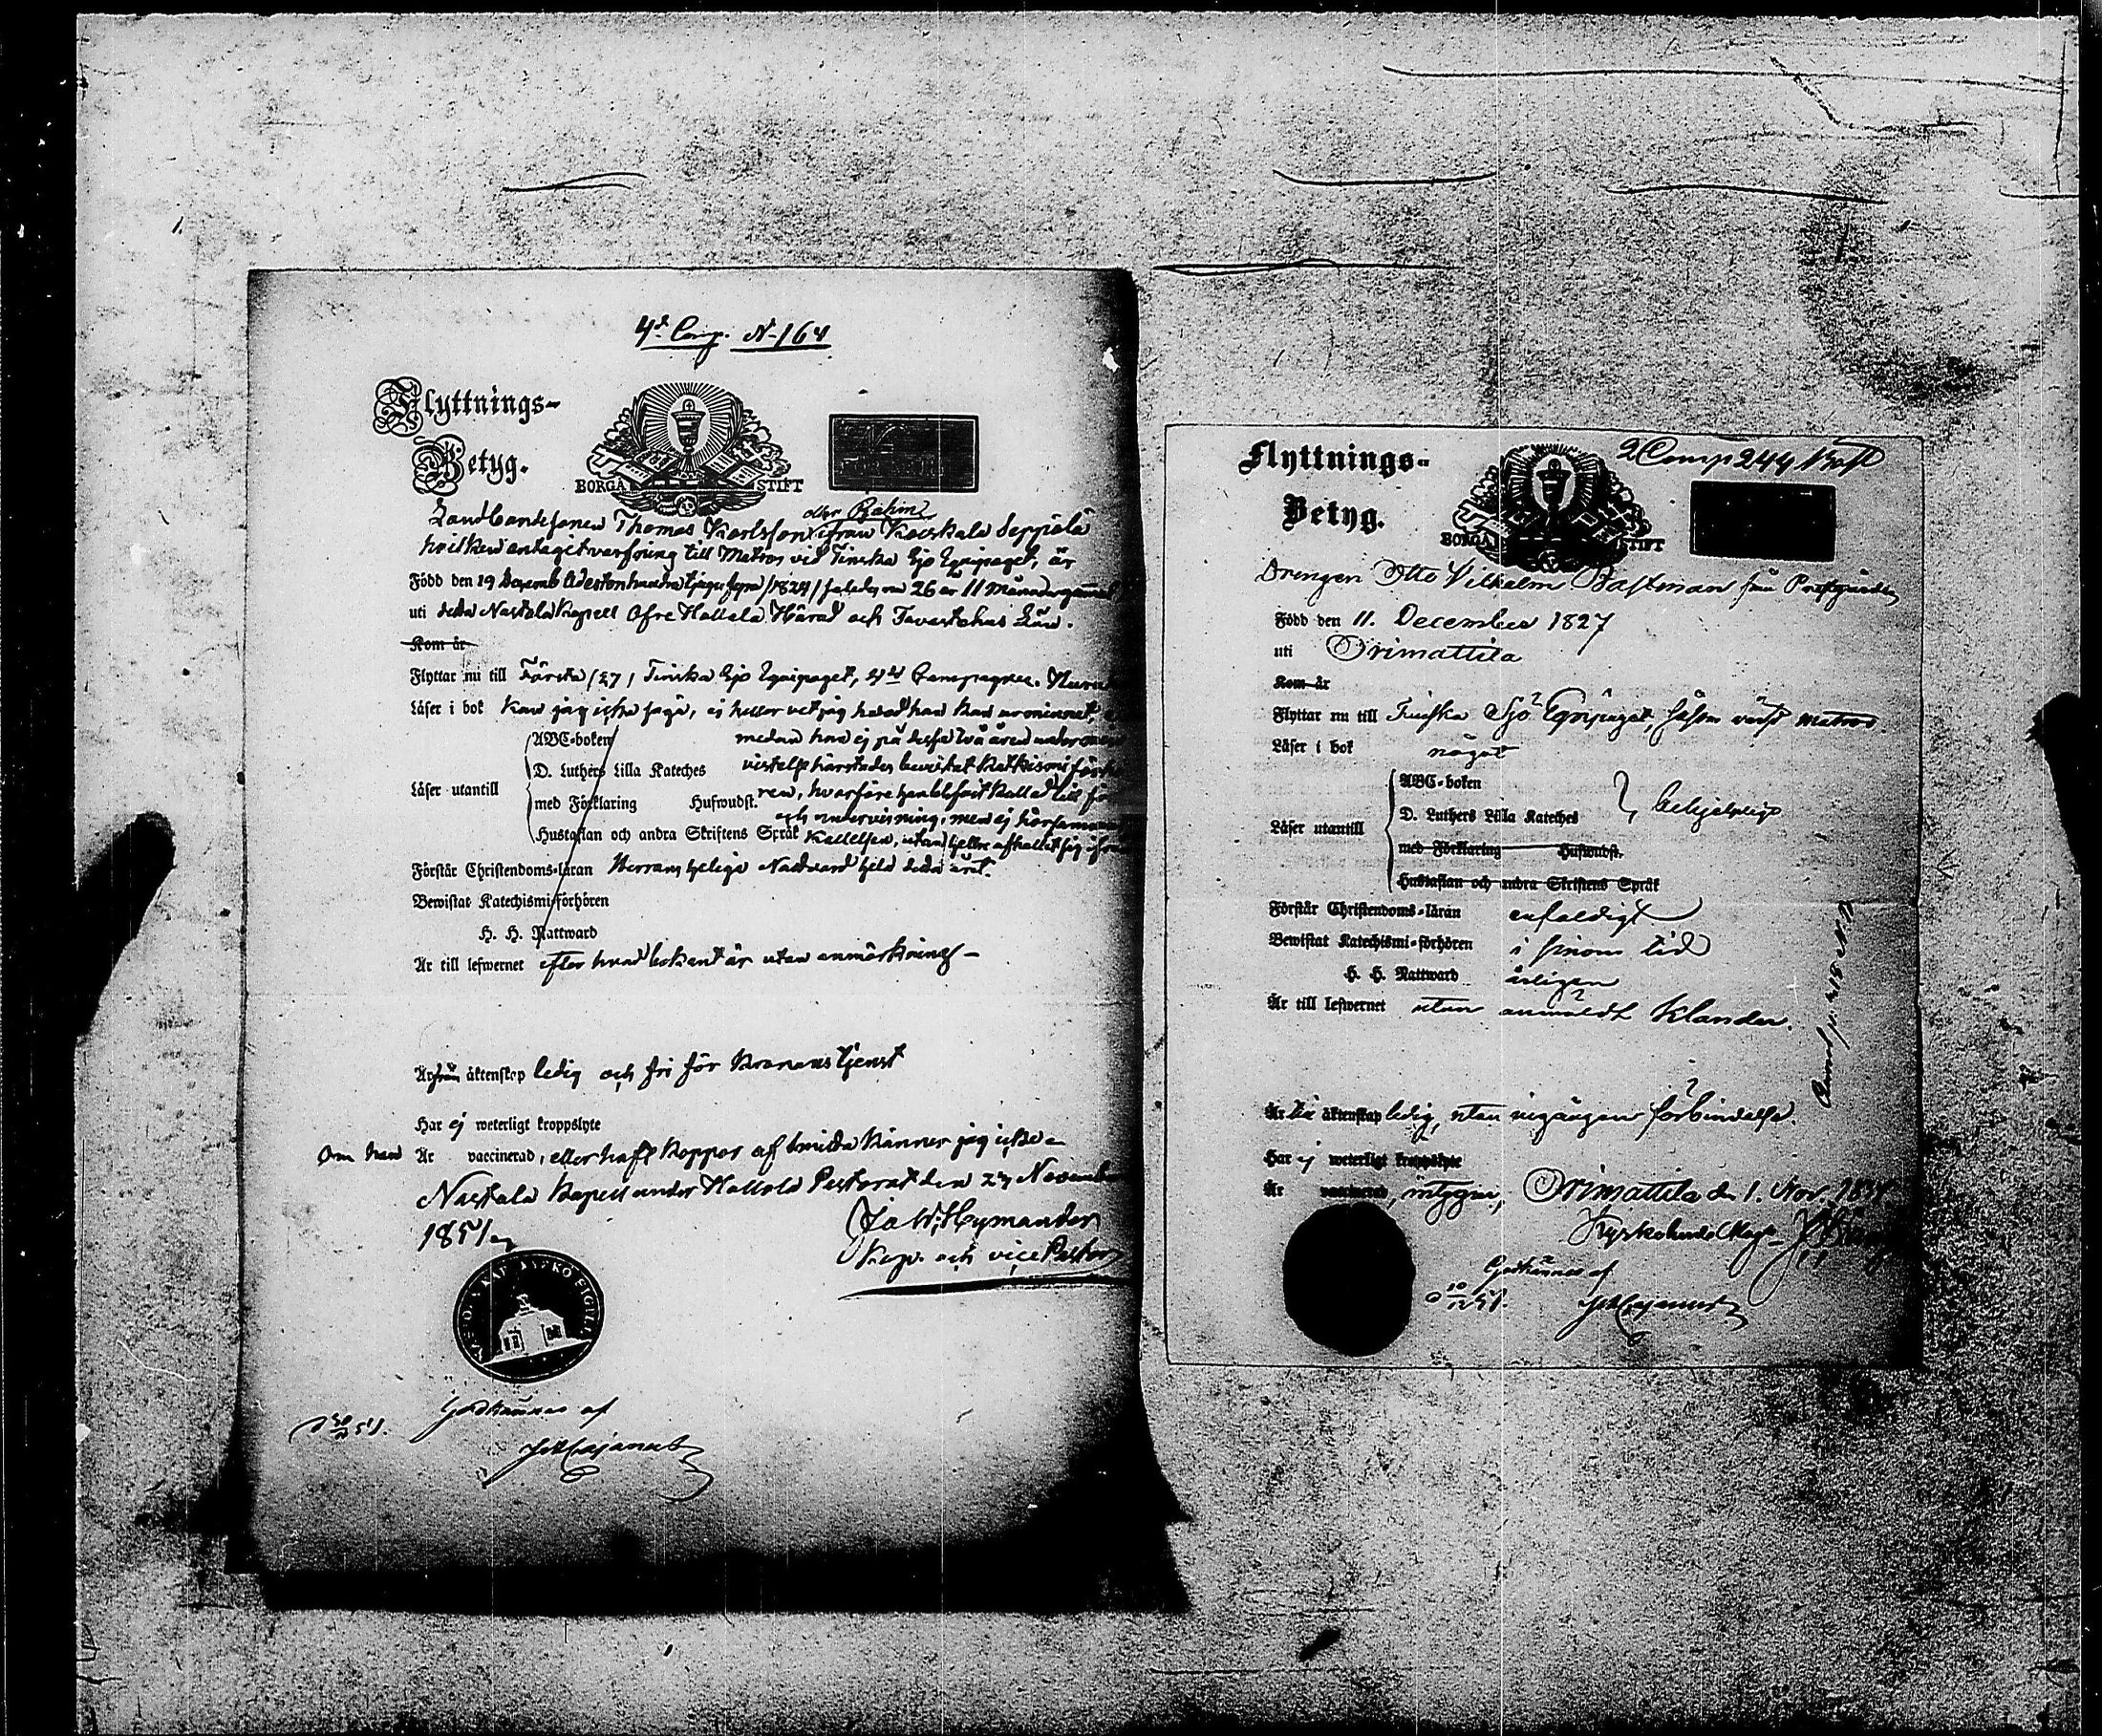 4de Comp. N 164
Flyttnings-
Betyg.
BORGÅ STIFT
eller Böhm
Landbondesonen Thomas Karlsson ifrån Koiskala Seppälä
hvilken antagit värfning till Matros vid Finska Sjö Equipaget, är
Född den 19 Decemb Adertonhundratjugufyra /1824/ således nu 26 år 11 månader gammal
uti detta Nastola Kapell Öfre Hollola Härad och Tavastehus Län.
Kom år
Flyttar nu till Första /27/ Finska Sjö Equipaget, 4de Compagnie.
Läser i bok kan jag icke säga, ej heller vet jag hvad han kan ur minnet,
ABC-boken medan han ej på dessa två åren under
D. Luthers Lilla Kateches vistelse härstädes bevistat Katkismi
Läser utantill
med Förklaring Hufwudst. ren, hvarföre han blifvit kallad till
och undervisning, men ej hörsammat
Hustaflan och andra Skriftens Språk kallelsen, utan heller afhållit sig ifrån
Förstår Christendoms-läran Herrans heliga Nattvard hela detta året.
Bewistat Katechismi-förhören
H. H. Nattward
Är till lefwernet efter hvad bekant är utan anmärkning
Är från äktenskap ledig och fri för Kronans tjenst
Har ej weterligt kroppslyte
Om han Är vaccinerad, eller haft koppor af känner jag icke
Nastola Kapell under Hollola Pastorat den 27 November
1851
Ja W. Hymander
Kap. och vice Pastor
Godkännes af
JW Cajanus
2 Comp 244
Flyttnings-
Betyg.
BORGÅ STIFT
Drengen Otto Vilhelm Bastman från Prestgården
Född den 11. December 1827
uti Orimattila
Kom år
Flyttar nu till Finska Sjö Equipaget, såsom värfd matros
Läser i bok något
ABC-boken
D. Luthers Lilla Kateches behjelpligt
Läser utantill
med Förklaring Hufwudst.
Hustaflan och andra Skriftens Språk
Förstår Christendoms-läran enfaldigt
Bewistat Katechismi-förhören i sinom tid
H. H. Nattward årligen
Är till lefwernet utan anmäldt klander.
Är till äktenskap ledig, utan ingången förbindelse.
Har ej weterligt kroppslyte
Är vaccinerad, intygar, Orimattila d. 1. Nov. 1851
Kyrkoherde
Godkännes af
JW Cajanus